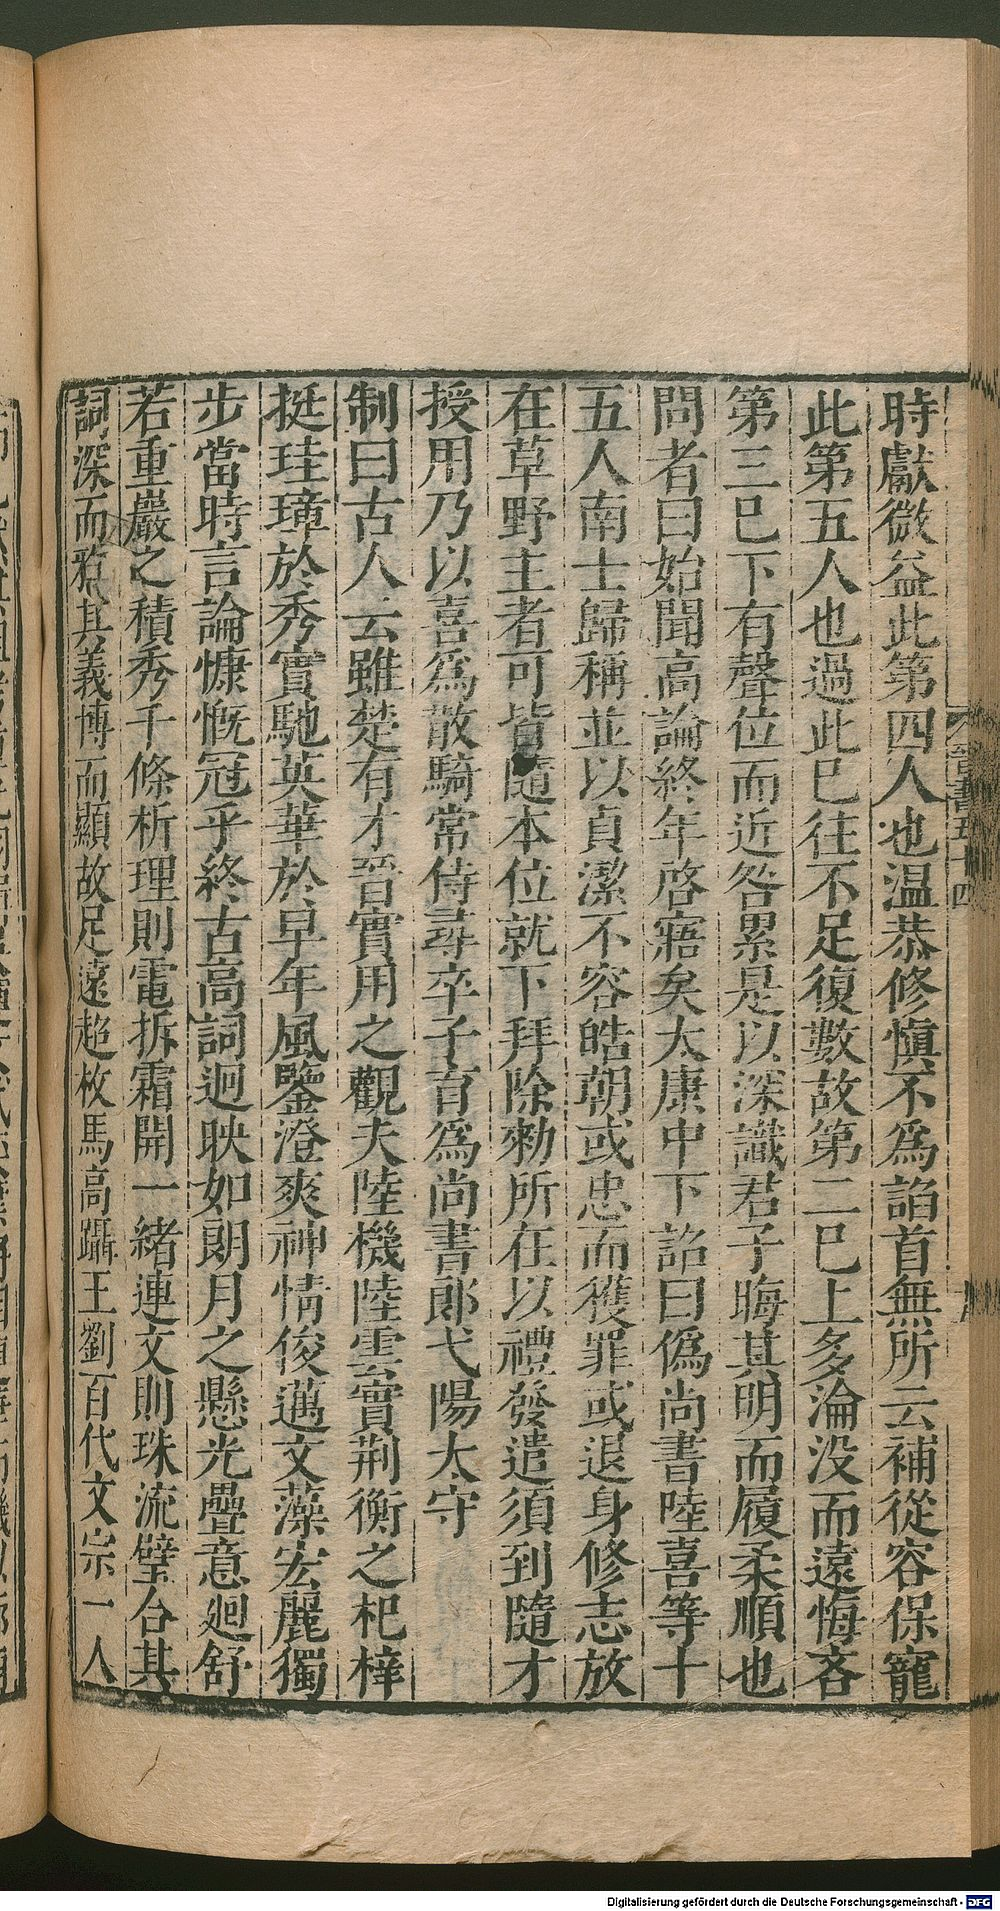 時獻微益此第四人也温恭修愼不爲諂首無所云補從容保寵
此第五人也過此已往不足復數故第二已上多淪没而遠悔吝
第三已下有聲位而近咎累是以深識君子晦其明而履柔順也
問者曰始聞高論終年啓寤矣太康中下詔曰僞尚書陸喜等十
五人南士歸稱並以貞潔不容皓朝或忠而獲罪或退身修志放
在草野主者可皆隨本位就下拜除勑所在以禮發遣須到隨才
授用乃以喜爲散騎常侍尋卒子育爲尚書郎弋陽太守
制曰古人云雖楚有才晉實用之觀夫陸機陸雲實荆衡之杞梓
挺珪璋於秀實馳英華於早年風鑒澄爽神情俊邁文藻宏麗獨
步當時言論慷慨冠乎終古高詞迥映如朗月之懸光疊意廻舒
若重巖之積秀千條析理則電拆霜開一緒連文則珠流璧合其
詞深而雅其義博而顯故足遠超枚馬高躡王劉百代文宗一人
晉書五十四
Digitalisierung gefördert durch die Deutsche Forschungsgemeinschaft - DFG